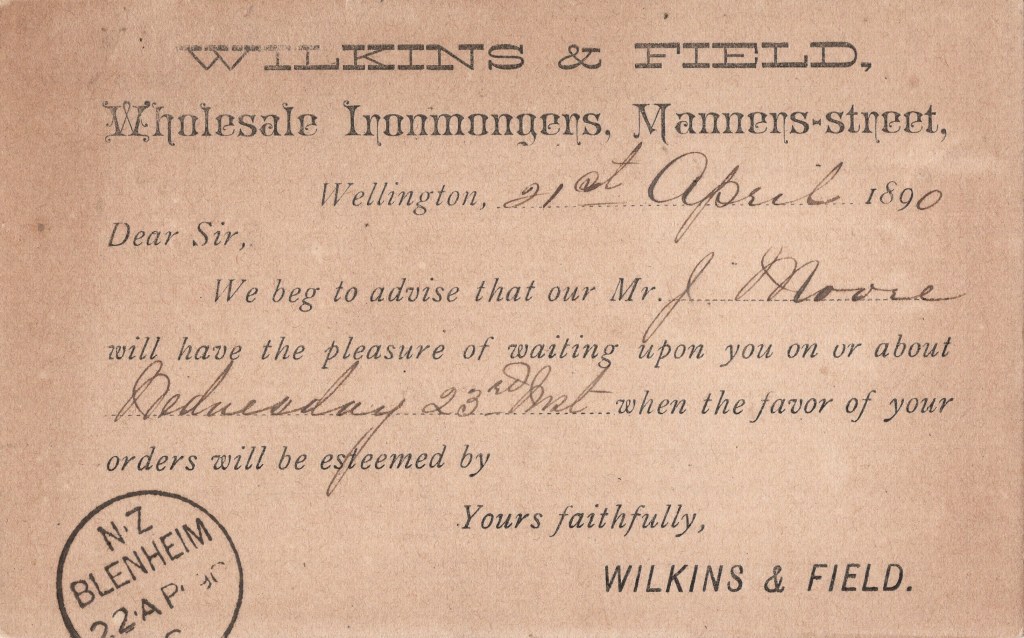 WILKINS & FIELD,
Wholesale Ironmongers, Manners-street,
Wellington, 21st April 1890
Dear Sir,
We beg to advise that our Mr. J. Moore
will have the pleasure of waiting upon you on or about
Wednesday 23rd Inst when the favor of your
orders will be esteemed by
Yours faithfully,
WILKINS & FIELD.
N·Z
BLENHEIM
22·AP·90